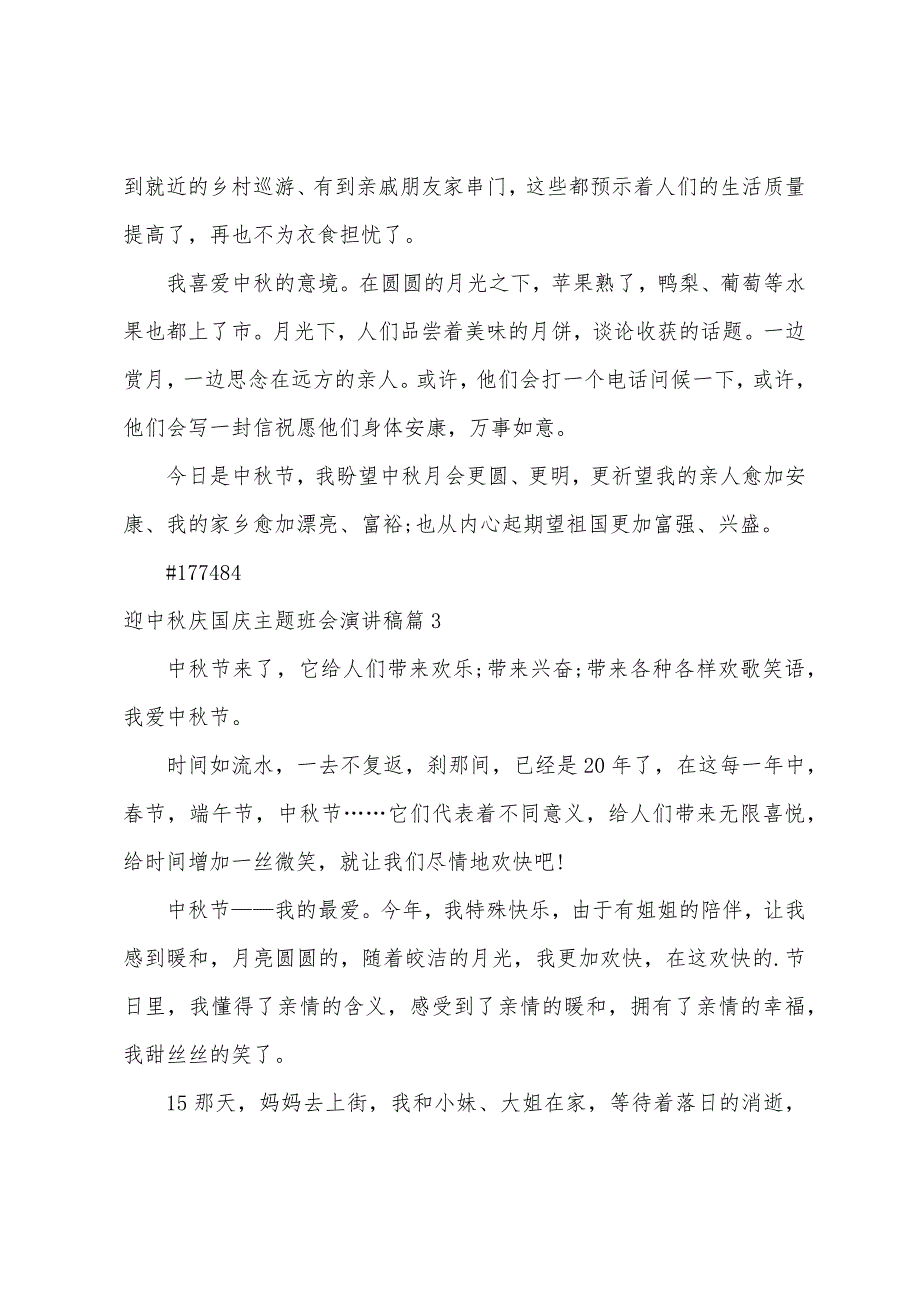 到就近的乡村巡游、有到亲戚朋友家串门，这些都预示着人们的生活质量
提高了，再也不为衣食担忧了。
我喜爱中秋的意境。在圆圆的月光之下，苹果熟了，鸭梨、葡萄等水
果也都上了市。月光下，人们品尝着美味的月饼，谈论收获的话题。一边
赏月，一边思念在远方的亲人。或许，他们会打一个电话问候一下，或许，
他们会写一封信祝愿他们身体安康，万事如意。
今日是中秋节，我盼望中秋月会更圆、更明，更祈望我的亲人愈加安
康、我的家乡愈加漂亮、富裕;也从内心起期望祖国更加富强、兴盛。
#177484
迎中秋庆国庆主题班会演讲稿篇3
中秋节来了，它给人们带来欢乐;带来兴奋;带来各种各样欢歌笑语，
我爱中秋节。
时间如流水，一去不复返，刹那间，已经是20年了，在这每一年中，
春节，端午节，中秋节……它们代表着不同意义，给人们带来无限喜悦，
给时间增加一丝微笑，就让我们尽情地欢快吧!
中秋节——我的最爱。今年，我特殊快乐，由于有姐姐的陪伴，让我
感到暖和，月亮圆圆的，随着皎洁的月光，我更加欢快，在这欢快的.节
日里，我懂得了亲情的含义，感受到了亲情的暖和，拥有了亲情的幸福，
我甜丝丝的笑了。
15那天，妈妈去上街，我和小妹、大姐在家，等待着落日的消逝，